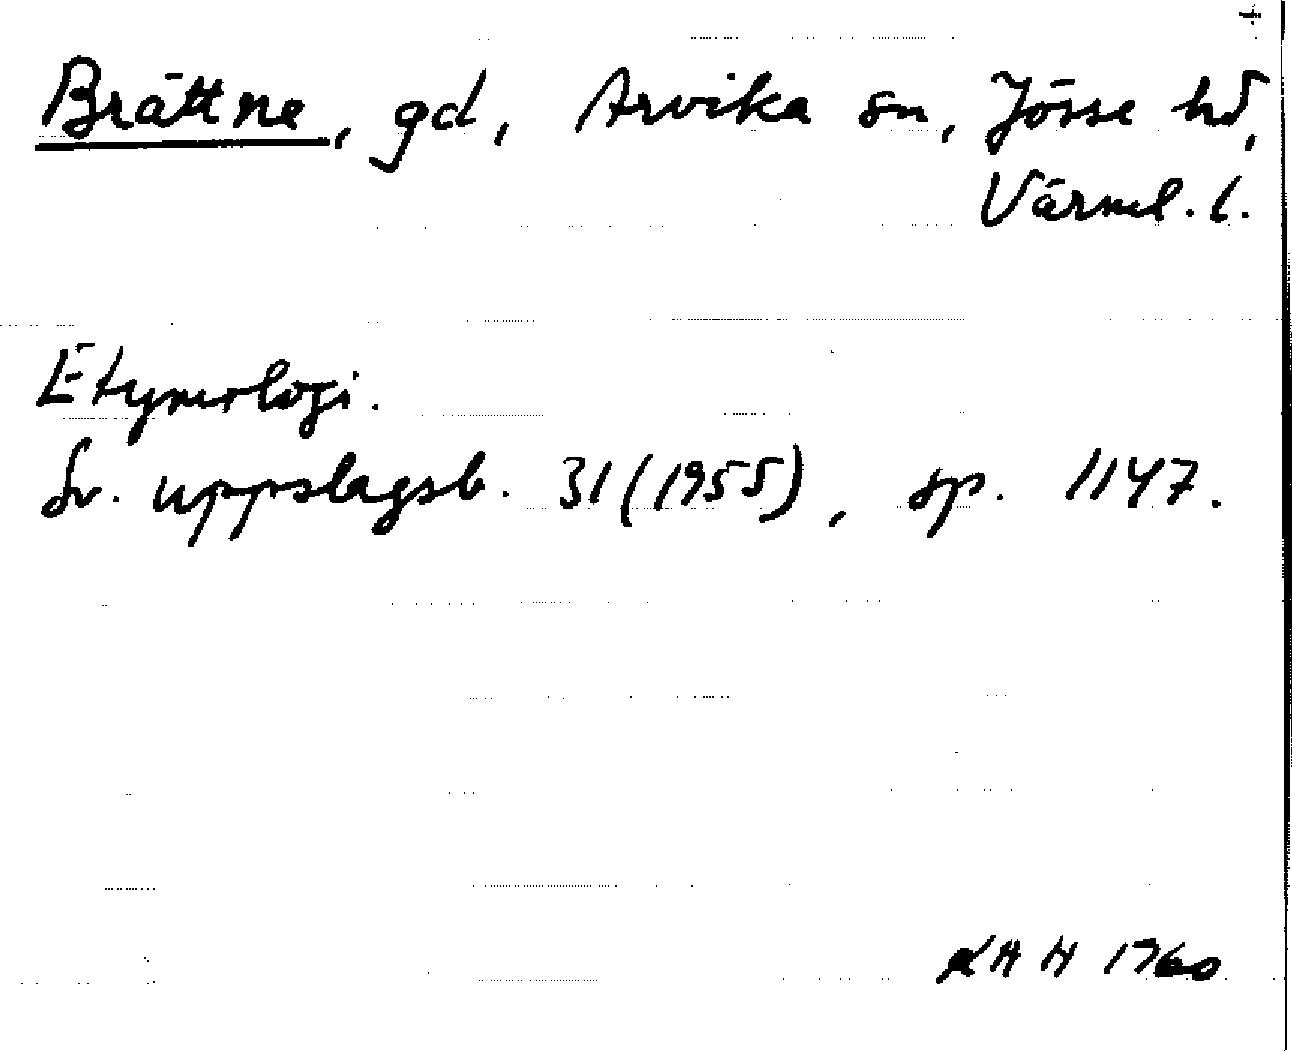 Brättne, gd, Arvika sn, Jösse hd,
Värml. l.
Etymologi.
Sv. uppslagsb. 31 (1955), sp. 1147.
KHH 1960